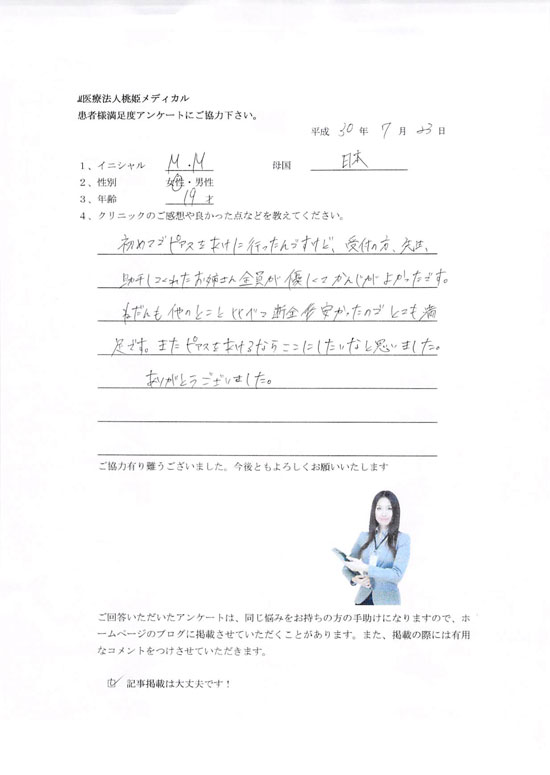 医療法人桃姫メディカル
患者様満足度アンケートにご協力下さい。
平成 30 年 7 月 23 日
1、イニシャル M.M 母国 日本
2、性別 女性・男性
3、年齢 19 才
4、クリニックのご感想や良かった点などを教えてください。
初めてピアスをあけに行ったんですけど、受付の方、先生、
助手してくれたお姉さん全員が優しくてかんじがよかったです。
ねだんも他のとことくらべて断全安かったのでとても満
足です。またピアスをあけるならここにしたいなと思いました。
ありがとうございました。
ご協力有り難うございました。今後ともよろしくお願いいたします
ご回答いただいたアンケートは、同じ悩みをお持ちの方の手助けになりますので、ホ
ームページのブログに掲載させていただくことがあります。また、掲載の際には有用
なコメントをつけさせていただきます。
記事掲載は大丈夫です！